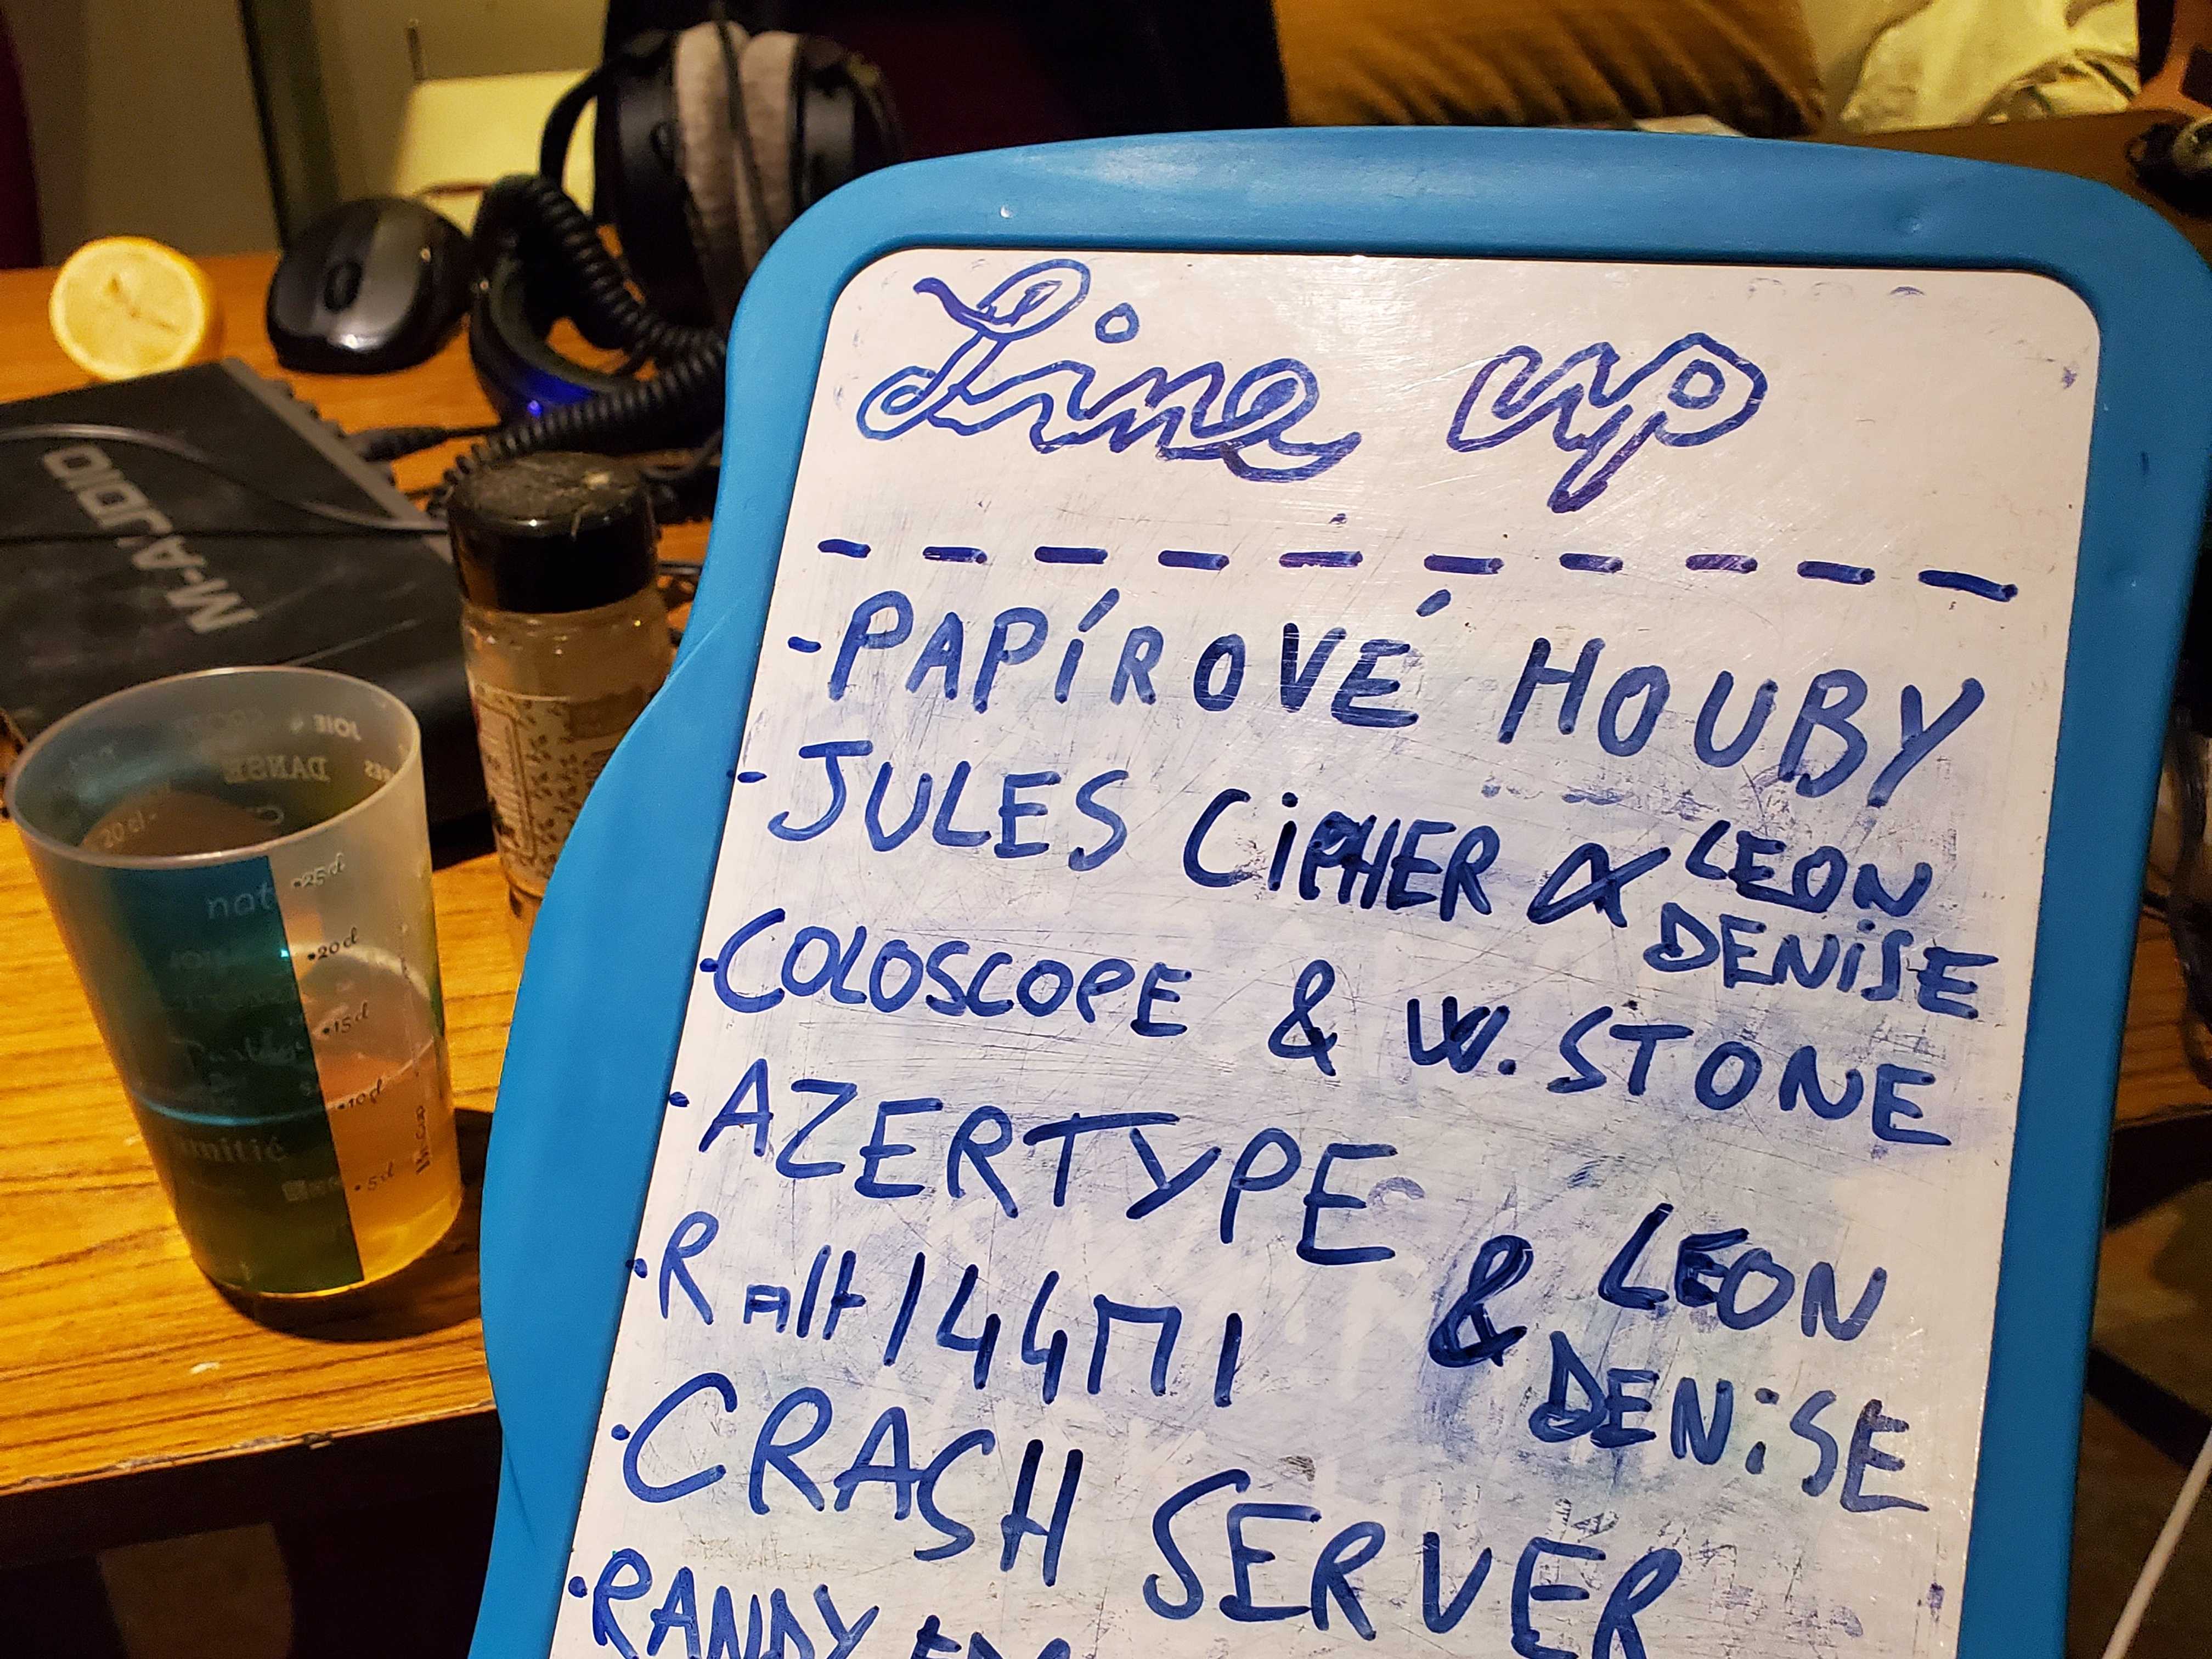 Line up
- PAPÍROVÉ HOUBY
- JULES CiPHER & LEON
DENiSE
· COLOSCOPE & W. STONE
· AZERTYPE
· RAlt144MI & LEON
DENiSE
· CRASH SERVER
· RANDY
M-AUDIO
JOIE
DANSE
20cl
nat
25cl
20cl
15cl
10cl
5cl